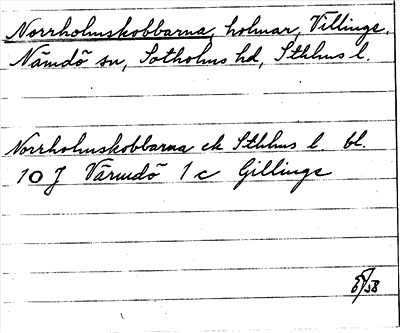 Norrholmskobbarna, holmar, Villinge,
Nämdö sn, Sotholms hd, Sthlms l.
Norrholmskobbarna ek Sthlms l. bl.
10 J Värmdö 1 c Gillinge
/58